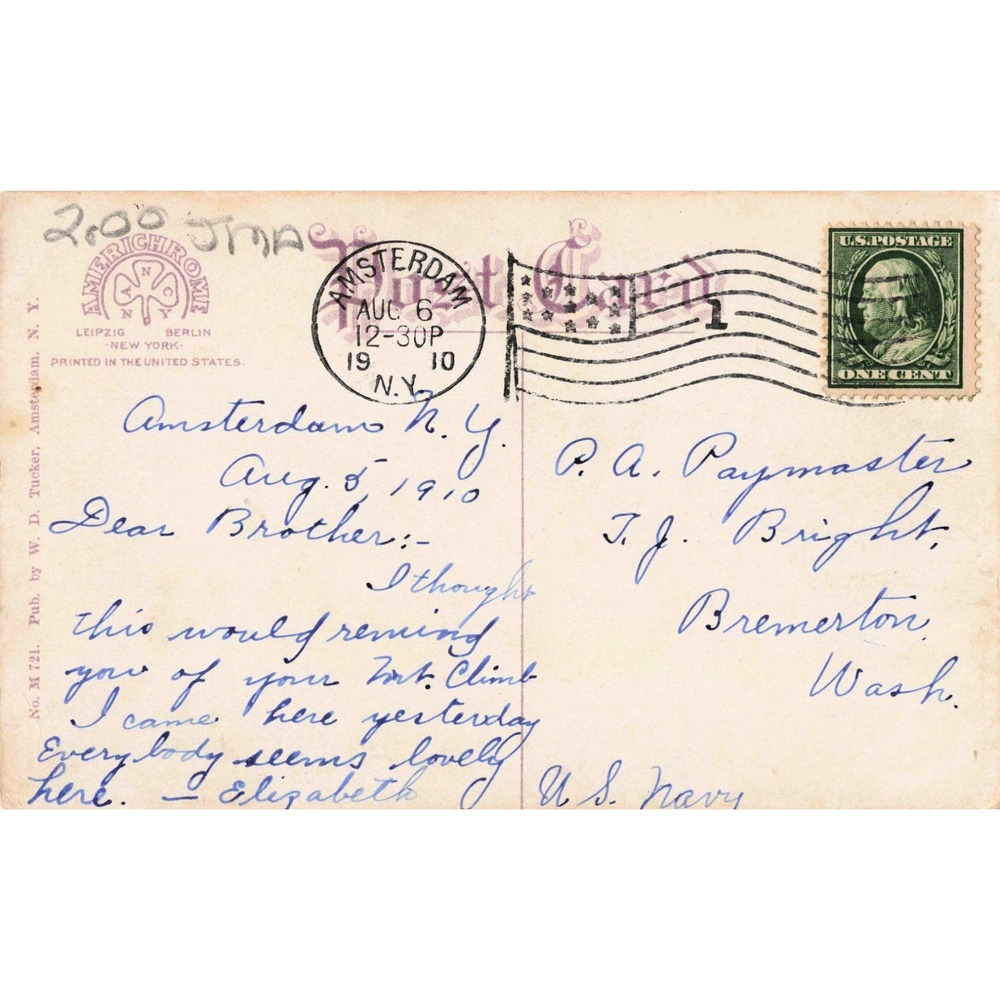 2.00 JMA
AMERICHROME
A N C
N Y
LEIPZIG BERLIN
·NEW YORK·
PRINTED IN THE UNITED STATES.
No. M 721. Pub. by W. D. Tucker, Amsterdam, N. Y.
Post Card
AMSTERDAM
AUG 6
12-30P
19 10
N.Y.
1
U.S. POSTAGE
ONE CENT
Amsterdam N. Y.
Aug. 5, 1910
Dear Brother:-
I thought
this would remind
you of your Mt. Climb
I came here yesterday
Everybody seems lovely
here. — Elizabeth
P. A. Paymaster
T. J. Bright,
Bremerton,
Wash.
U S. Navy